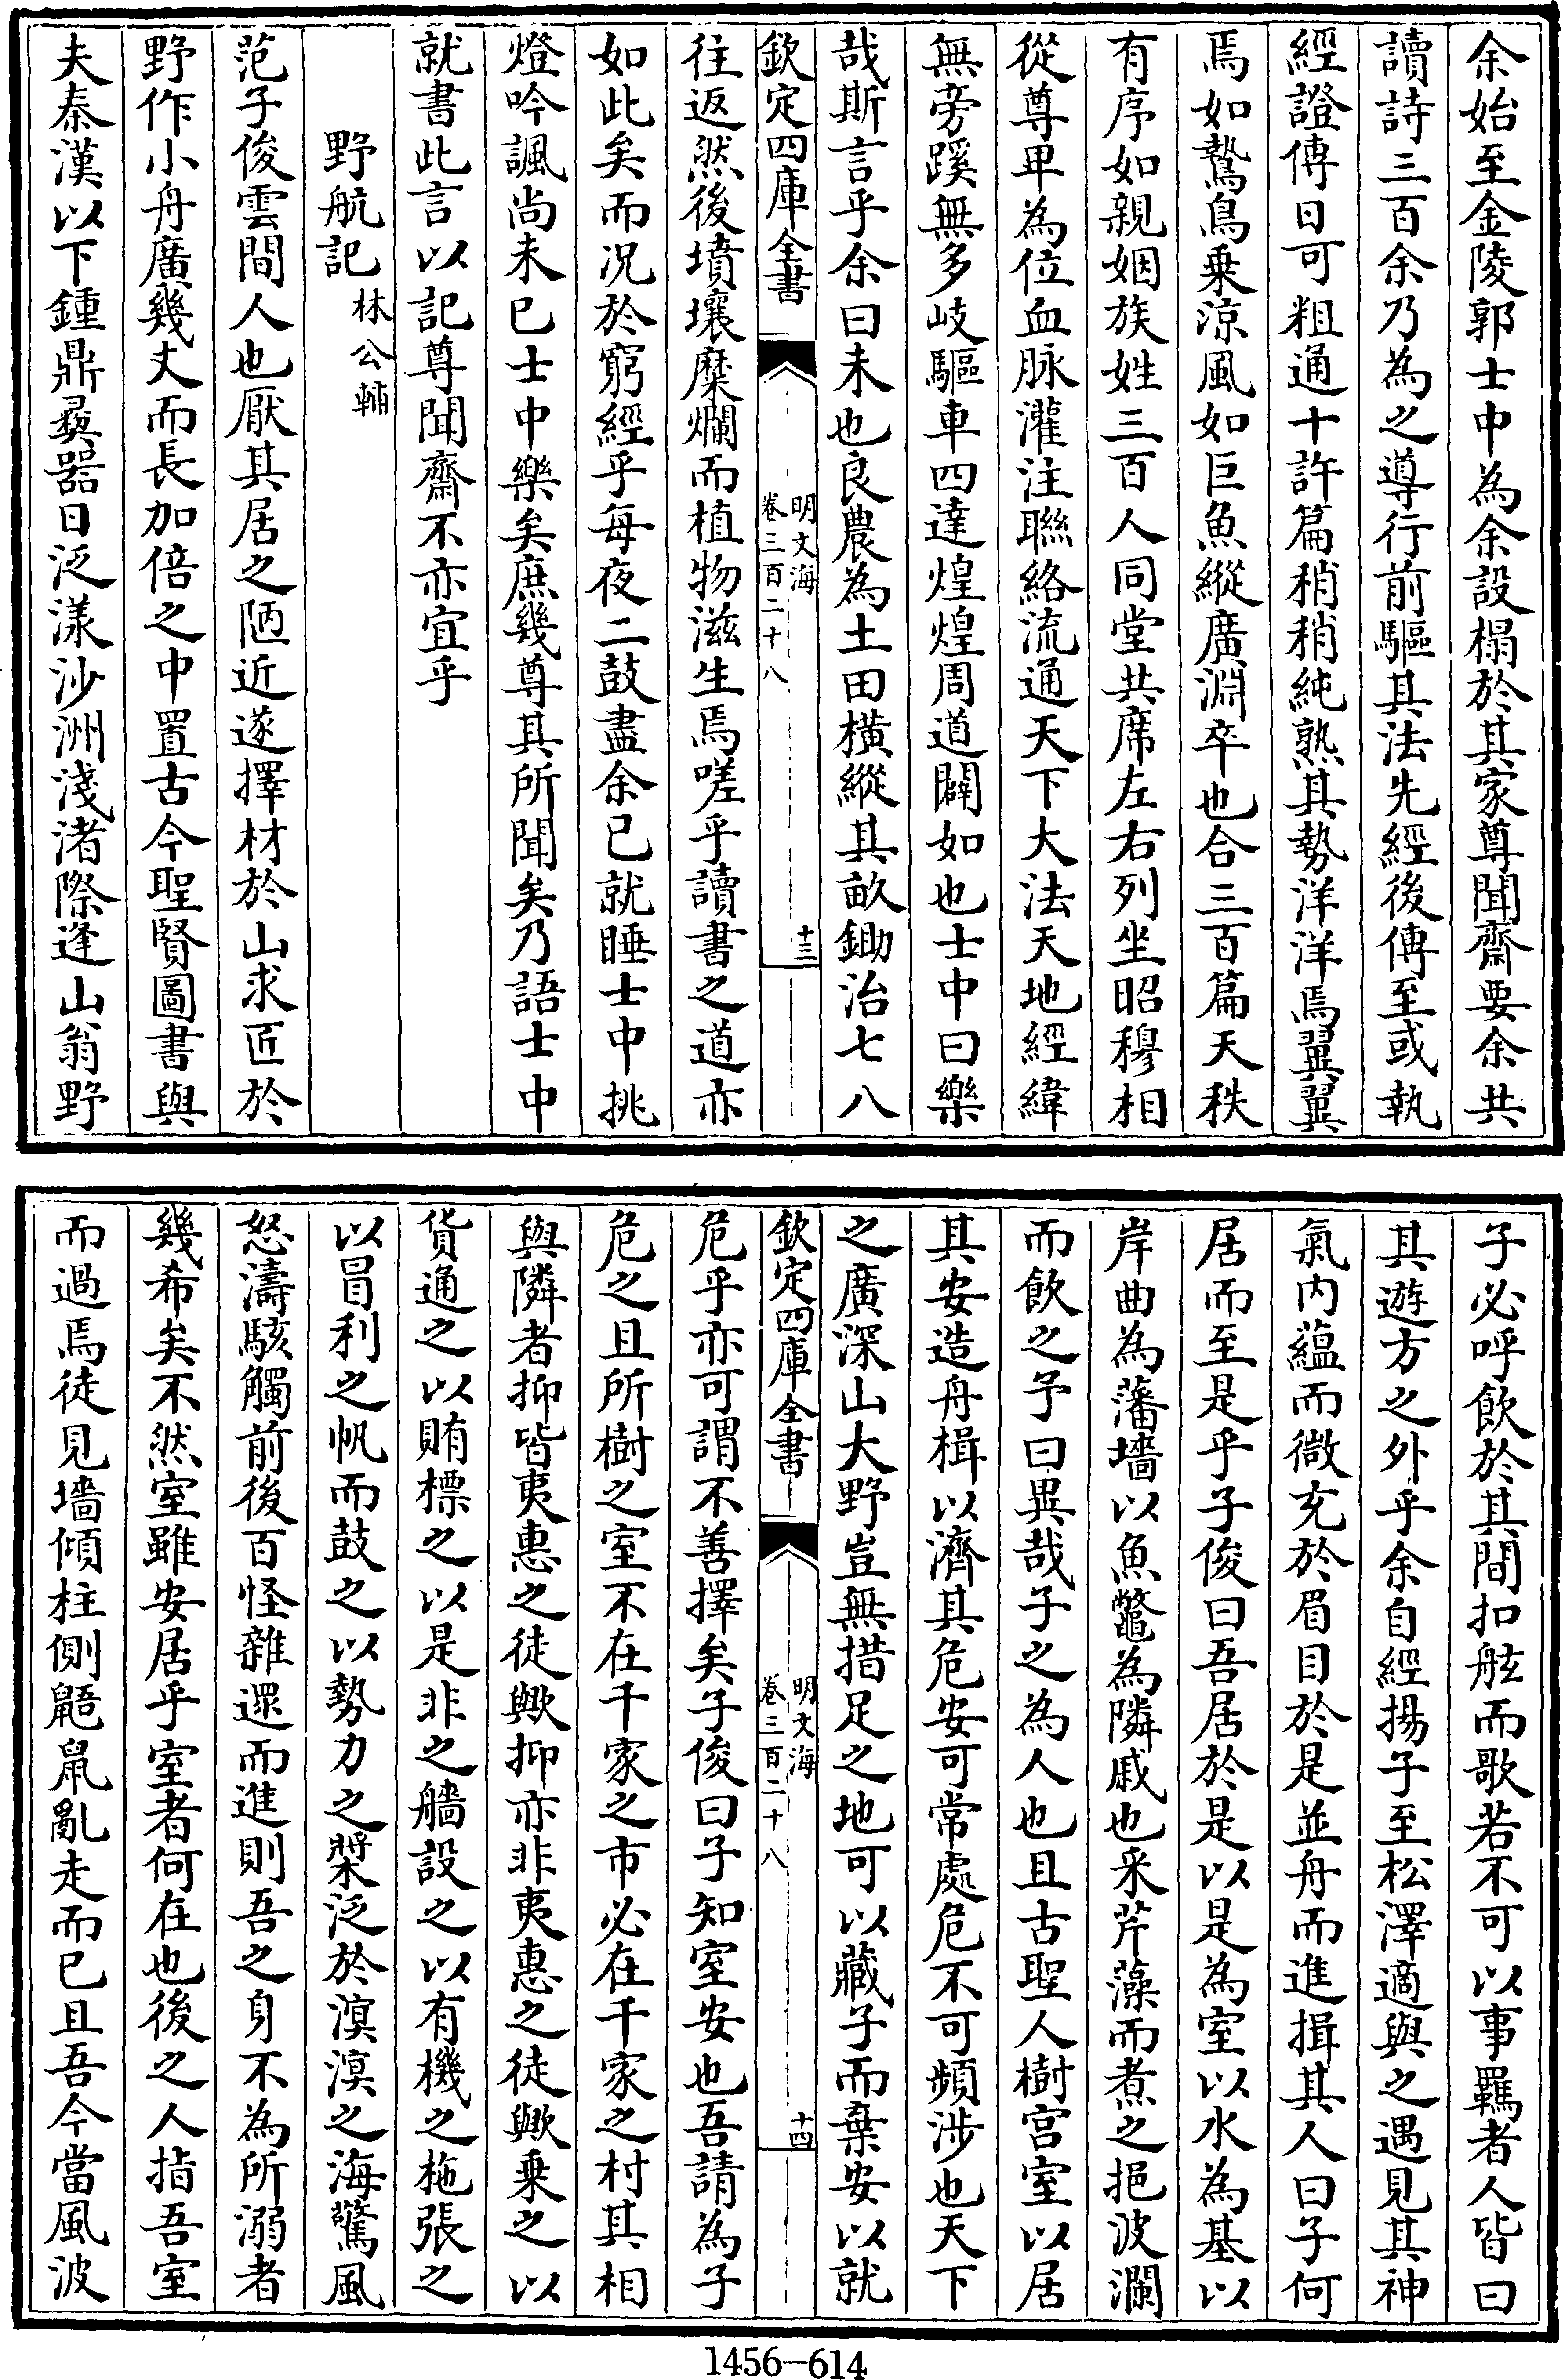 余始至金陵郭士中為余設榻於其家尊聞齋要余共
讀詩三百余乃為之導行前驅其法先經後傳至或執
經證傳日可粗通十許篇稍稍純熟其勢洋洋焉翼翼
焉如鷙鳥乗涼風如巨魚縱廣淵卒也合三百篇天秩
有序如親姻族姓三百人同堂共席左右列坐昭穆相
從尊卑為位血脉灌注聯絡流通天下大法天地經緯
無旁蹊無多岐驅車四達煌煌周道闢如也士中曰樂
哉斯言乎余曰未也良農為土田橫縱其畝鋤治七八
欽定四庫全書
明文海
卷三百二十八
十三
往返然後墳壤糜爛而植物滋生焉嗟乎讀書之道亦
如此矣而况於窮經乎每夜二鼓盡余已就睡士中挑
燈吟諷尚未已士中樂矣庶幾尊其所聞矣乃語士中
就書此言以記尊聞齋不亦宜乎
野航記 林公輔
范子俊雲間人也厭其居之陋近遂擇材於山求匠於
野作小舟廣幾丈而長加倍之中置古今聖賢圖書與
夫秦漢以下鍾鼎彛器日泛漾沙洲淺渚際逢山翁野
子必呼飲於其間扣舷而歌若不可以事羈者人皆曰
其遊方之外乎余自經揚子至松澤適與之遇見其神
氣内蘊而微充於眉目於是並舟而進揖其人曰子何
居而至是乎子俊曰吾居於是以是為室以水為基以
岸曲為藩墻以魚鼈為隣戚也采芹藻而煮之挹波瀾
而飲之予曰異哉子之為人也且古聖人樹宫室以居
其安造舟楫以濟其危安可常處危不可頻涉也天下
之廣深山大野豈無措足之地可以藏子而棄安以就
欽定四庫全書
明文海
卷三百二十八
十四
危乎亦可謂不善擇矣子俊曰子知室安也吾請為子
危之且所樹之室不在千家之市必在千家之村其相
與隣者抑皆夷惠之徒歟抑亦非夷惠之徒歟乗之以
貨通之以賄標之以是非之艢設之以有機之柂張之
以冒利之帆而鼓之以勢力之槳泛於溟溟之海驚風
怒濤駭觸前後百怪雜還而進則吾之身不為所溺者
幾希矣不然室雖安居乎室者何在也後之人指吾室
而過焉徒見墻傾柱側鼯鼠亂走而已且吾今當風波
1456—614